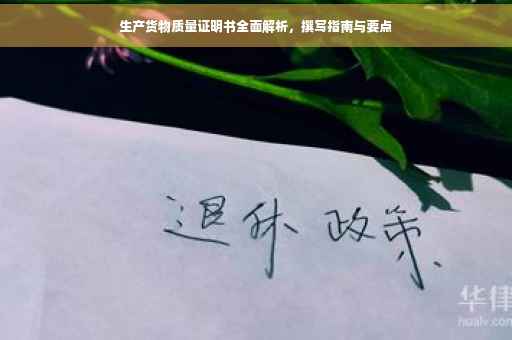 生产货物质量证明书全面解析，撰写指南与要点
退休 政策
华律
hualv.com